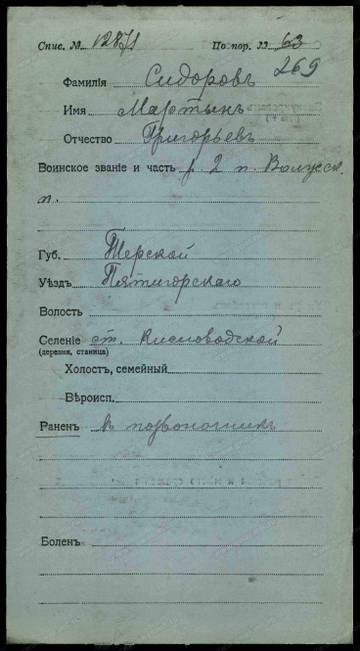 Спис. № 1287/1 По пор. № 63
269
Фамилія Сидоровъ
Имя Мартынъ
Отчество Григорьевъ
Воинское званіе и часть р. 2 п. Волгск.
п.
Губ. Терской
Уѣздъ Пятигорскаго
Волость
Селеніе ст. Кисловодской
(деревня, станица)
Холостъ, семейный
Вѣроисп.
Раненъ въ позвоночникъ
Боленъ